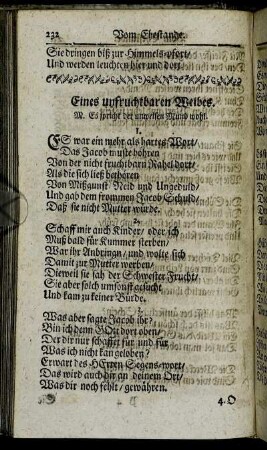 232 Vom Ehestande.
Sie dringen biß zur Himmels-pfort/
Und werden leuchten hier und dort.
Eines unfruchtbaren Weibes.
M. Es spricht der unweisen Mund wohl.
1.
ES war ein mehr als hartes Wort/
Das Jacob muste hören
Von der nicht fruchtbarn Rahel dort/
Als die sich ließ bethören
Von Mißgunst/ Neid und Ungedult/
Und gab dem frommen Jacob Schuld/
Daß sie nicht Mutter würde.
2.
Schaff mir auch Kinder/ oder ich
Muß bald für Kummer sterben/
War ihr Andringn/ und wolte sich
Damit zur Mutter werben/
Dieweil sie sah der Schwester Frucht/
Sie aber solch umsonst gesucht
Und kam zu keiner Bürde.
3.
Was aber sagte Jacob ihr?
Bin ich denn GOtt dort oben/
Der dir nur schaffet für und für
Was ich nicht kan geloben?
Erwart des HErren Segens-wort/
Das wird auch dir an deinem Ort/
Was dir noch fehlt/ gewähren.
4. O